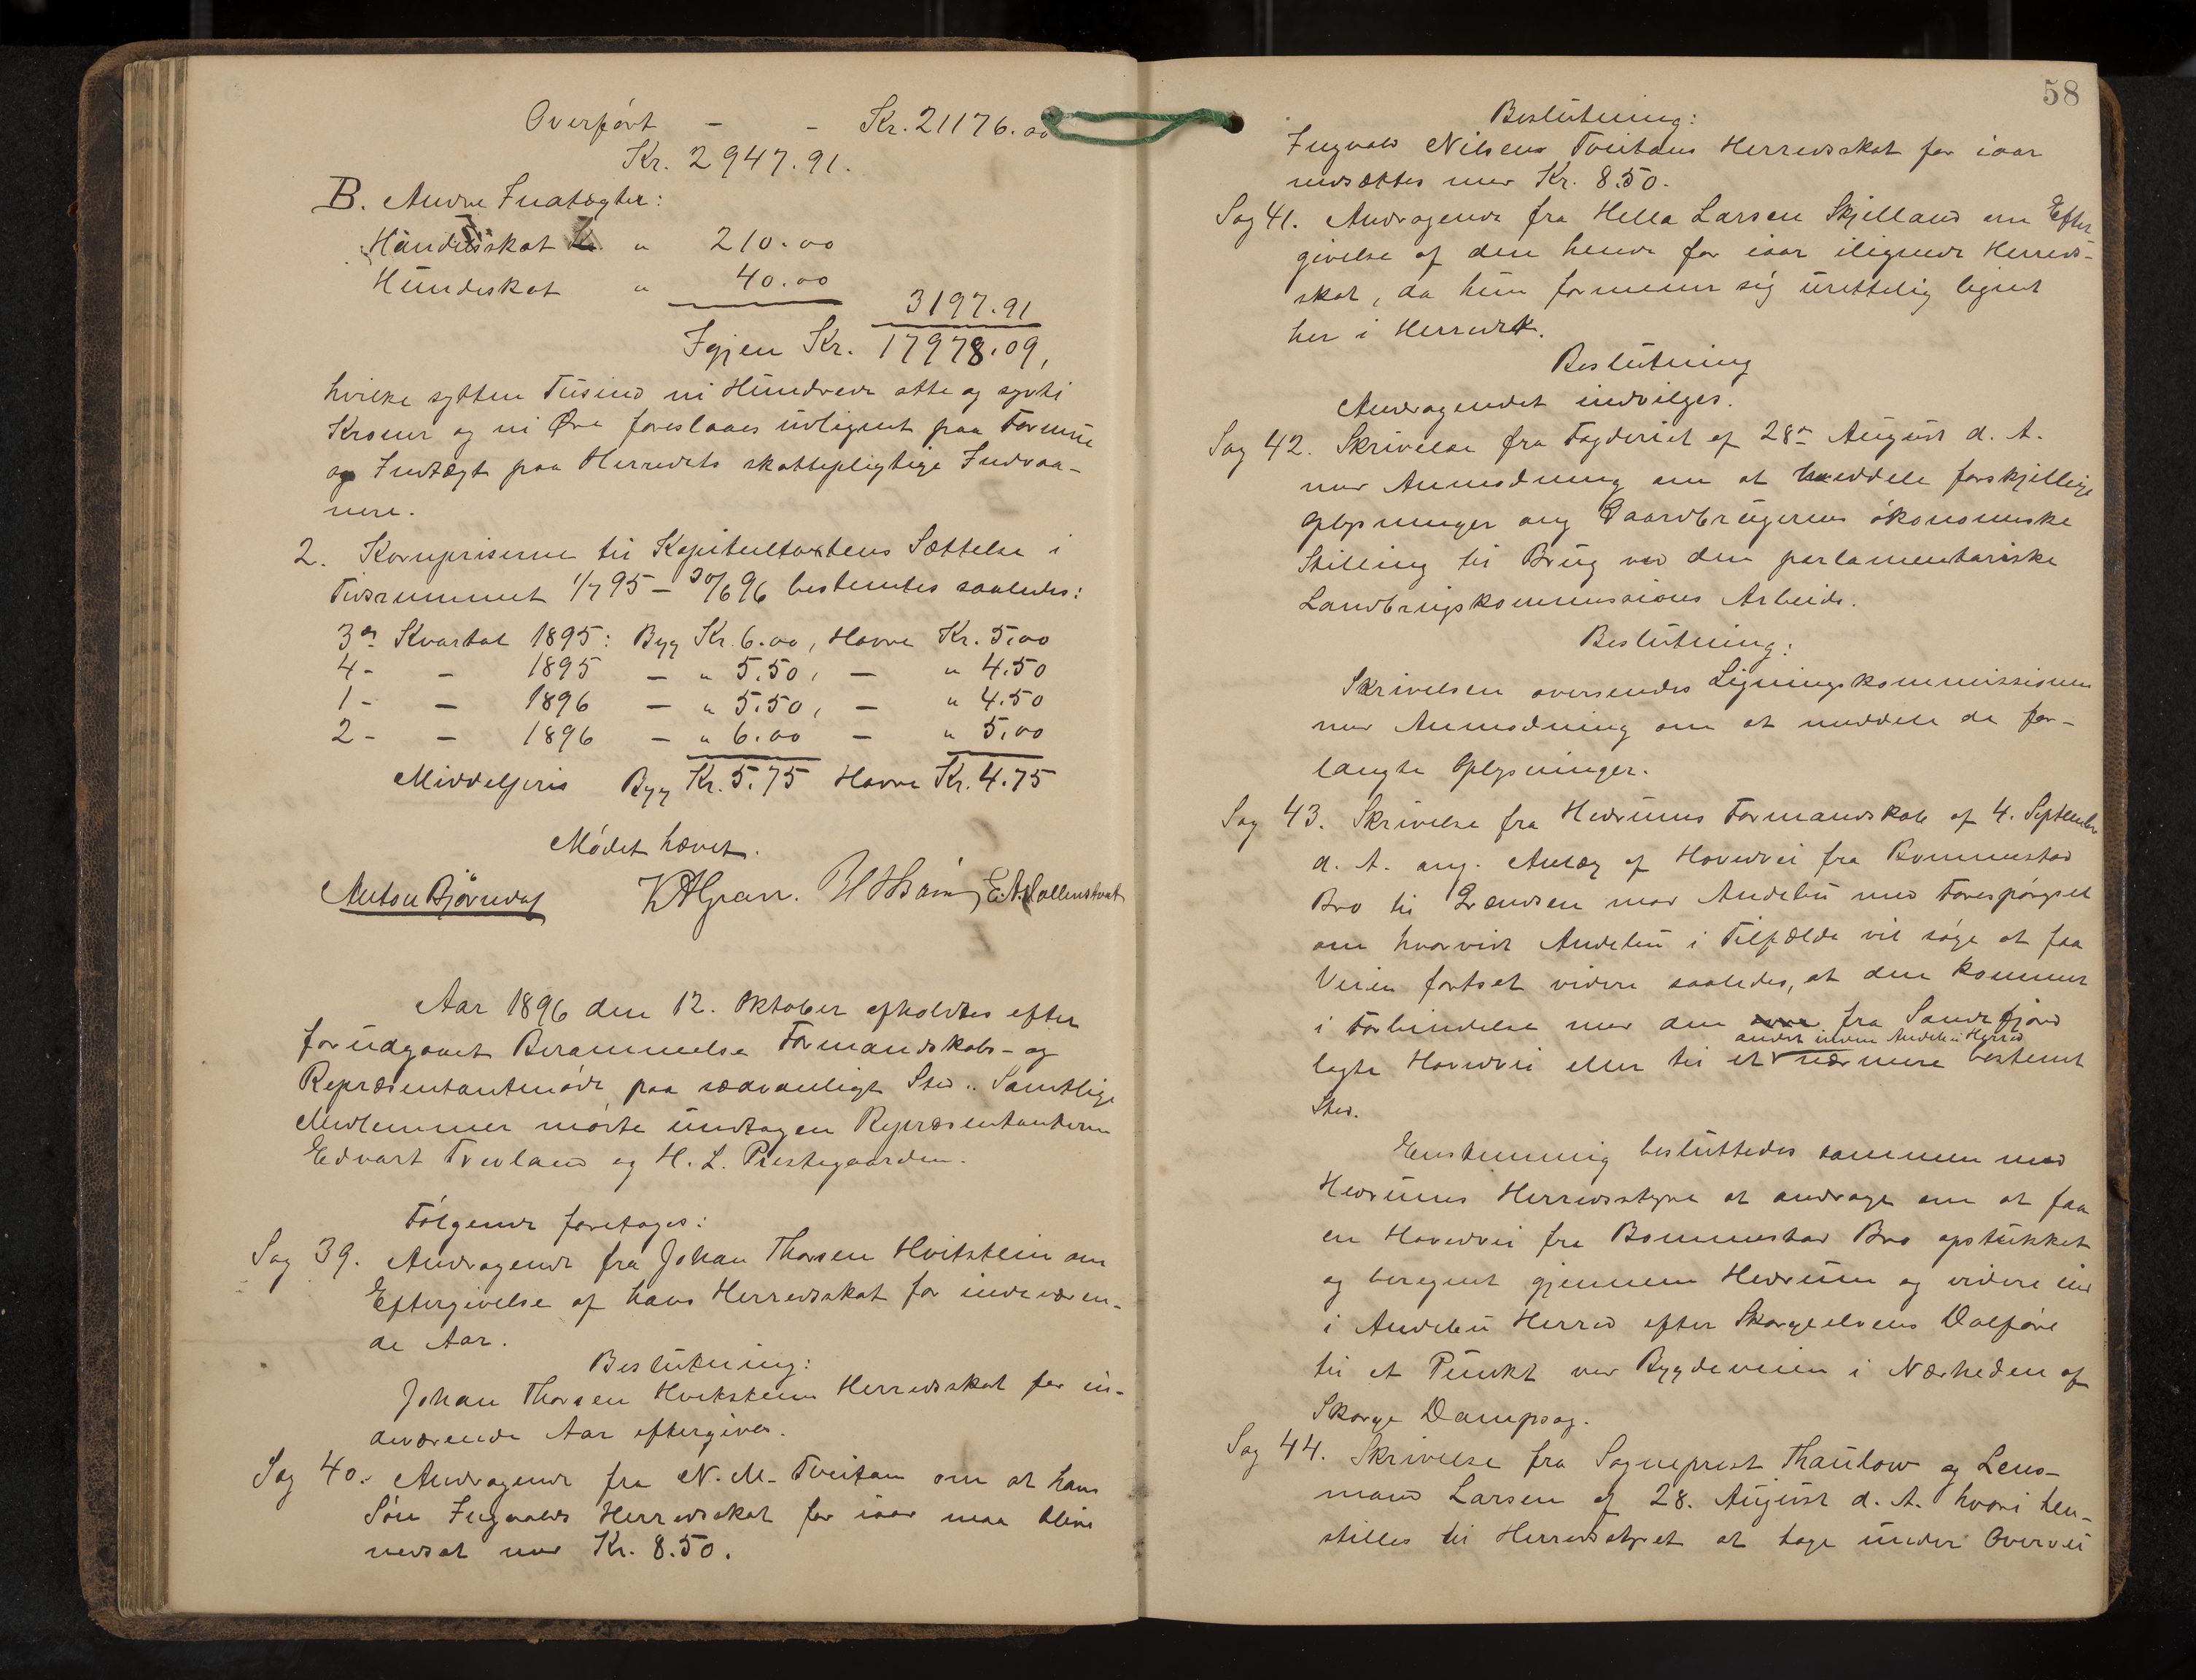 Overført - - Kr. 21176.00
Kr. 2947.91.
B. Andre Indtægter:
Handelsskat " 210.00
Hundeskat " 40.00
3197.91
Igjen Kr. 17978.09,
hvilke sytten Tusind ni Hundrede otte og sytti
Kroner og ni Øre foreslaaes udlignet paa Formue
og Indtægt paa Herredets skattepligtige Indvaa-
nere.
2. Kornpriserne til Kapiteltaxtens Sættelse i
Tidsrummet 1/7 95 - 30/6 96 bestemtes saaledes:
3die Kvartal 1895: Byg Kr. 6.00, Havre Kr. 5.00
4- - 1895 - " 5.50, - " 4.50
1- - 1896 - " 5.50, - " 4.50
2- - 1896 - " 6.00 - " 5.00
Middelpris Byg Kr. 5.75 Havre Kr. 4.75
Mødet hævet.
Anton Bjørndal
Aar 1896 den 12. Oktober afholdtes efter
forudgaaet Berammelse Formandskabs- og
Repræsentantmøde paa sædvanligt Sted. Samtlige
Medlemmer mødte undtagen Repræsentanterne
Edvart Trevland og H. L. Prestegaarden.
Følgende foretages:
Sag 39. Andragende fra Johan Thorsen Hvitstein om
Eftergivelse af hans Herredsskat for indeværen-
de Aar.
Beslutning:
Johan Thorsen Hvitsteins Herredsskat for in-
deværende Aar eftergives.
Sag 40. Andragende fra N. M. Tveitan om at hans
Søn Ingvalds Herredsskat for iaar maa blive
nedsat med Kr. 8.50.
58
Beslutning:
Ingvald Nilsens Tveitans Herredsskat for iaar
nedsættes med Kr. 8.50.
Sag 41. Andragende fra Hella Larsen Skjelland om Efter
givelse af den hende for iaar ilignede Herreds-
skat, da hun formener sig urettelig lignet
her i Herredet.
Beslutning
Andragendet indvilges.
Sag 42. Skrivelse fra Fogderiet af 28de August d. A.
med Anmodning om at meddele forskjellige
Oplysninger ang Gaardbrugernes økonomiske
Stilling til Brug ved den parlamentariske
Landbrugskommissions Arbeide.
Beslutning:
Skrivelsen oversendes Ligningskommissionen
med Anmodning om at meddele de for-
langte Oplysninger.
Sag 43. Skrivelse fra Hedrums Formandskab af 4. September
d. A. ang. Anlæg af Hovedvei fra Bommestad
Bro til Grændsen mod Andebu med Forespørgsel
om hvorvidt Andebu i Tilfælde vil søge at faa
Veien fortsat videre saaledes, at den kommer
i Forbindelse med den fra Sandefjord
andet inden Andebu Herred
lagte Hovedvei eller til et nærmere bestemt
Sted.
Enstemmig besluttedes sammen med
Hedrums Herredsstyre at andrage om at faa
en Hovedvei fra Bommestad Bro opstukket
og beregnet gjennem Hedrum og videre ind
i Andebu Herred efter Skorgeelvens Dalføre
til et Punkt ved Bygdeveien i Nærheden af
Skorge Dampsag.
Sag 44. Skrivelse fra Sogneprest Thaulow og Lens-
mand Larsen af 28. August d. A. hvori hen-
stilles til Herredsstyret at tage under Overvei